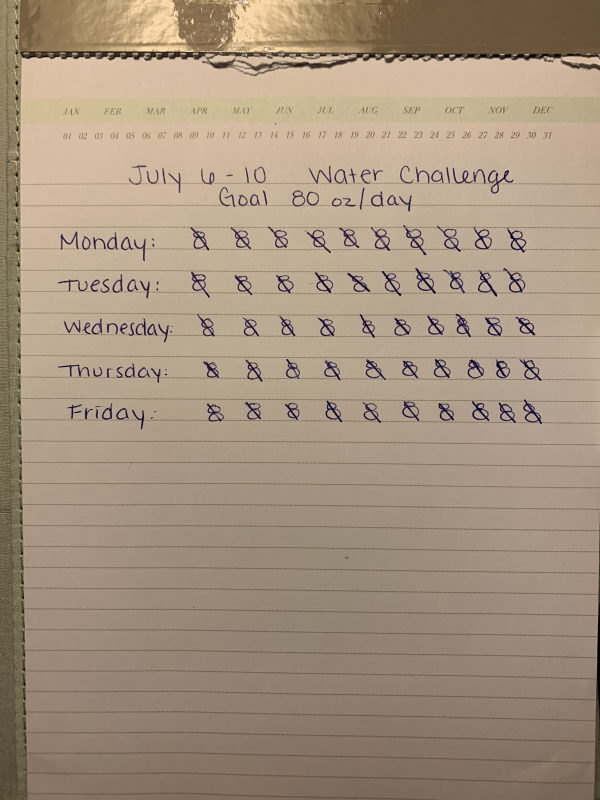 JAN FEB MAR APR MAY JUN JUL AUG SEP OCT NOV DEC
01 02 03 04 05 06 07 08 09 10 11 12 13 14 15 16 17 18 19 20 21 22 23 24 25 26 27 28 29 30 31
July 6-10 Water Challenge
Goal 80 oz/day
Monday: 8 8 8 8 8 8 8 8 8 8
Tuesday: 8 8 8 8 8 8 8 8 8 8
Wednesday: 8 8 8 8 8 8 8 8 8 8
Thursday: 8 8 8 8 8 8 8 8 8 8
Friday: 8 8 8 8 8 8 8 8 8 8